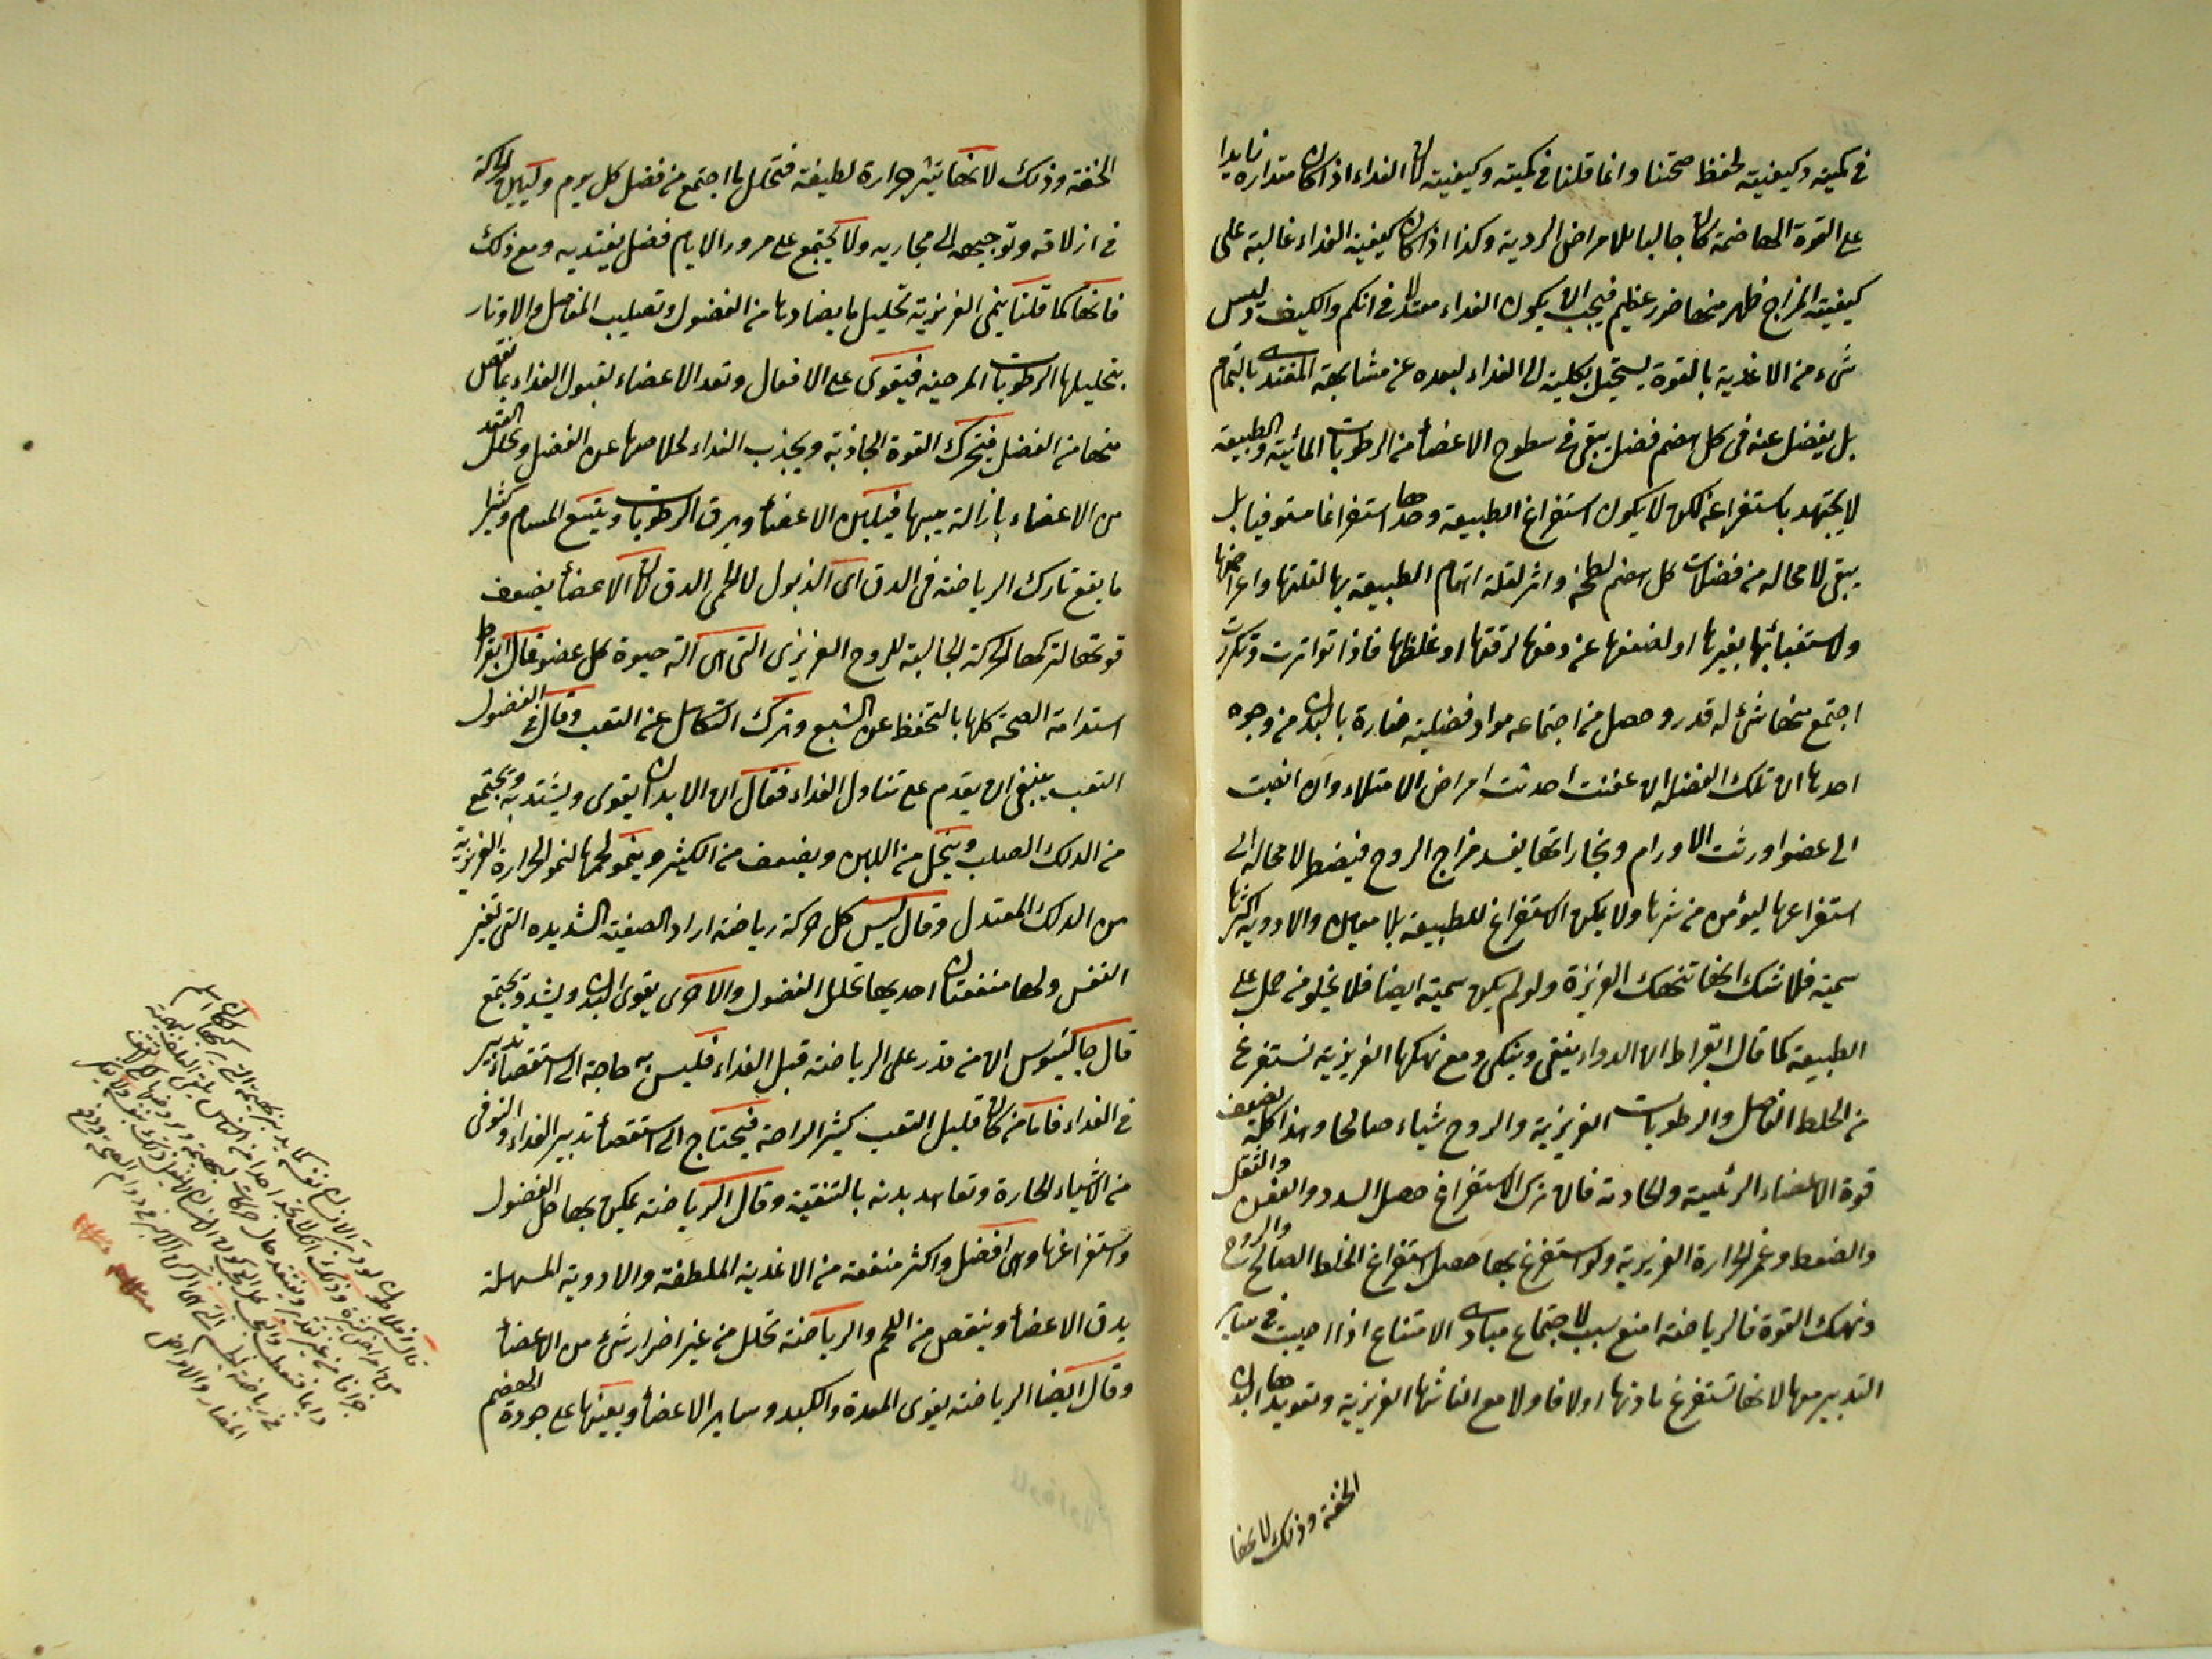 في كميته وكيفيته لحفظ صحتنا وانما قلنا في كميته وكيفيته لان الغداء اذا كان مقداره زايدا
على القوة الهاضمة كان جالبا للامراض الردية وكذا اذا كان كيفية الغداء غالبة على
كيفية المزاج ظهر منها ضرر عظيم فيجب ان يكون الغداء معتدلا في الكم والكيف وليس
شىء من الاغذية بالقوة يستحيل بكليته الى الغداء لبعده عن مشابهة المغتدى بالتمام
بل يفضل عنه في كل هضم فضل يبقى في سطوح الاعضاء من الرطوبات المائية والطبيعة
لا يجتهد باستفراغه لكن لا يكون استفراغ الطبيعة وحدها استفراغا مستوفيا بل
يبقى لا محاله من فضلات كل هضم لطخة واثر لقلة اهتمام الطبيعة بها لقلتها واعراضها
ولاستغنائها بغيرها او لضعفها عن دفعها لرقتها او غلظها فاذا تواترت وتكررت
اجتمع منها شئ له قدر وحصل من اجتماعه مواد فضلية ضارة بالبدن من وجوه
احدها ان تلك الفضلة ان عفنت احدثت امراض الامتلاء وان انصبت
الى عضو اورثت الاورام وبخاراتها يفسد مزاج الروح فيضطر لا محاله الى
استفراغها ليؤمن من شرها ولا يمكن الاستفراغ للطبيعة بلا معين والادوية اكثرها
سمية فلا شك انها تنهك الغريزة ولو لم يكن سمية ايضا فلا يخلو من حمل على
الطبيعة كما قال ابقراط ان الدواء ينقى وينكى ومع نهكها الغريزية تستفرغ
من الخلط الفاضل والرطوبات الغريزية والروح شياء صالحا وهذا كله يضعف
قوة الاعضاء الرئيسة والخادمة فان ترك الاستفراغ حصل السدد والعفن والثقل
والضغط وغمر الحرارة الغريزية ولو استفرغ بها حصل استفراغ الخلط الصالح والروح
ونهك القوة فالرياضة امنع سبب لاجتماع مبادى الامتناع اذا اصيبت في سائر
التدبير معها لانها تستفرغ باذنها اولا فاولا مع انعاشها الغريزية وتعويدها البدن
الخفة وذلك لانها
الخفة وذلك لانها يثير حرارة لطيفة فتحلل ما اجتمع من فضل كل يوم ويعين الحركة
في ازلاقه وتوجيهه الى مجاريه ولا يجتمع على مرور الايام فضل يعتد به ومع ذلك
فانها كما قلنا ينمى الغريزية تحليل ما يضادها من الفضول وتصليب المفاصل والاوتار
بتحليلها الرطوبات المرخية فيقوى على الافعال وتعد الاعضاء لقبول الغداء بما نقص
منها من الفضل فيتحرك القوة الجاذبة ويجذب الغداء لخلاصها عن الفضل ويحلل العقد
من الاعضاء بازالة يبسها فيلين الاعضاء ويرق الرطوبات ويتسع المسام وكثيرا
ما يقع تارك الرياضة في الدق اى الذبول لا الحمى الدق لان الاعضاء يضعف
قوتها لتركها الحركة الجالبة للروح الغريزى التى هى آلة حيوة كل عضو قال ابقراط
استدامة الصحة كلها بالتحفظ عن الشبع وترك التكاسل عن التعب وقال في الفصول
التعب ينبغى ان يقدم على تناول الغداء فقال ان الابدان يقوى ويشتد به ويجتمع
من الدلك الصلب وينحل من اللين ويضعف من الكثير وينمو لحمها لنمو الحرارة الغريزية
من الدلك المعتدل وقال ليس كل حركة رياضة اراد الصعبة الشديده التى تغير
النفس ولها منفعتان احديها تحلل الفضول والاخرى يقوى البدن ويشد ويجتمع
قال جالينوس ان من قدر على الرياضة قبل الغداء فليس به حاجة الى استقصاء تدبير
في الغداء فاما من كان قليل التعب كثير الراحة فيحتاج الى استقصاء تدبير الغداء والتوقى
من الاشياء الحارة وتعاهد بدنه بالتنقية وقال الرياضة يمكن بها حل الفضول
واستفراغها وهى افضل واكثر منفعة من الاغذية الملطفة والادوية المسهلة
يدق الاعضاء وينقص من اللحم والرياضة تحلل من غير اضرار شئ من الاعضاء
وقال ايضا الرياضة يقوى المعدة والكبد وساير الاعضاء ويعينها على جودة الهضم